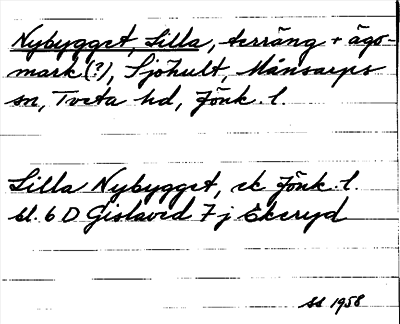 Nybygget, Lilla, terräng + ägo-
mark (?), Sjöhult, Månsarps
sn, Tveta hd, Jönk. l.
Lilla Nybygget, ek Jönk. l.
bl. 6 D Gislaved 7 j Ekeryd
SS 1958